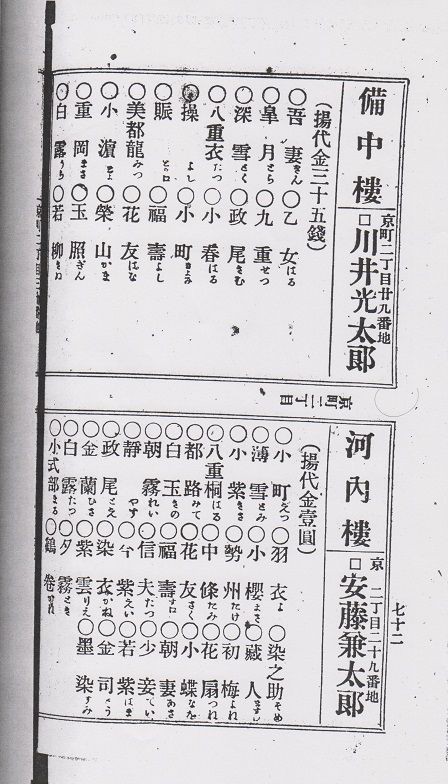 備中樓 京町二丁目廿九番地 □川井光太郎
(揚代金三十五錢)
○吾妻きん ○乙女はる
○皐月とら ○九重せつ
○深雪とく ○政尾きむ
○八重衣たつ ○小春はる
○操よし ○小町
○賑 ○福壽よし
○美都龍みつ ○花友はな
○小濵 ○榮山かま
○重岡まさ ○玉照ぎん
○白露うら ○若柳きね
京町二丁目
七十二
河內樓 京二丁目二十九番地 □安藤兼太郎
(揚代金壹圓)
○小町 ○羽衣 ○染之助そめ
○薄雪とみ ○小櫻 ○藏人
○小紫きさ ○勢州たけ ○初梅
○八重桐はる ○中條たみ ○花扇つれ
○都路みて ○花友さく ○小蝶
○白玉きの ○福壽 ○朝妻あさ
○朝霧れい ○信夫たつ ○少妾てい
○靜やす ○今紫えい ○若紫はま
○政尾さえ ○染衣かね ○金司
○金蘭ひさ ○紫雲りえ ○墨染すみ
○白露たつ ○夕霧さき
○小式部まる ○鶴巻